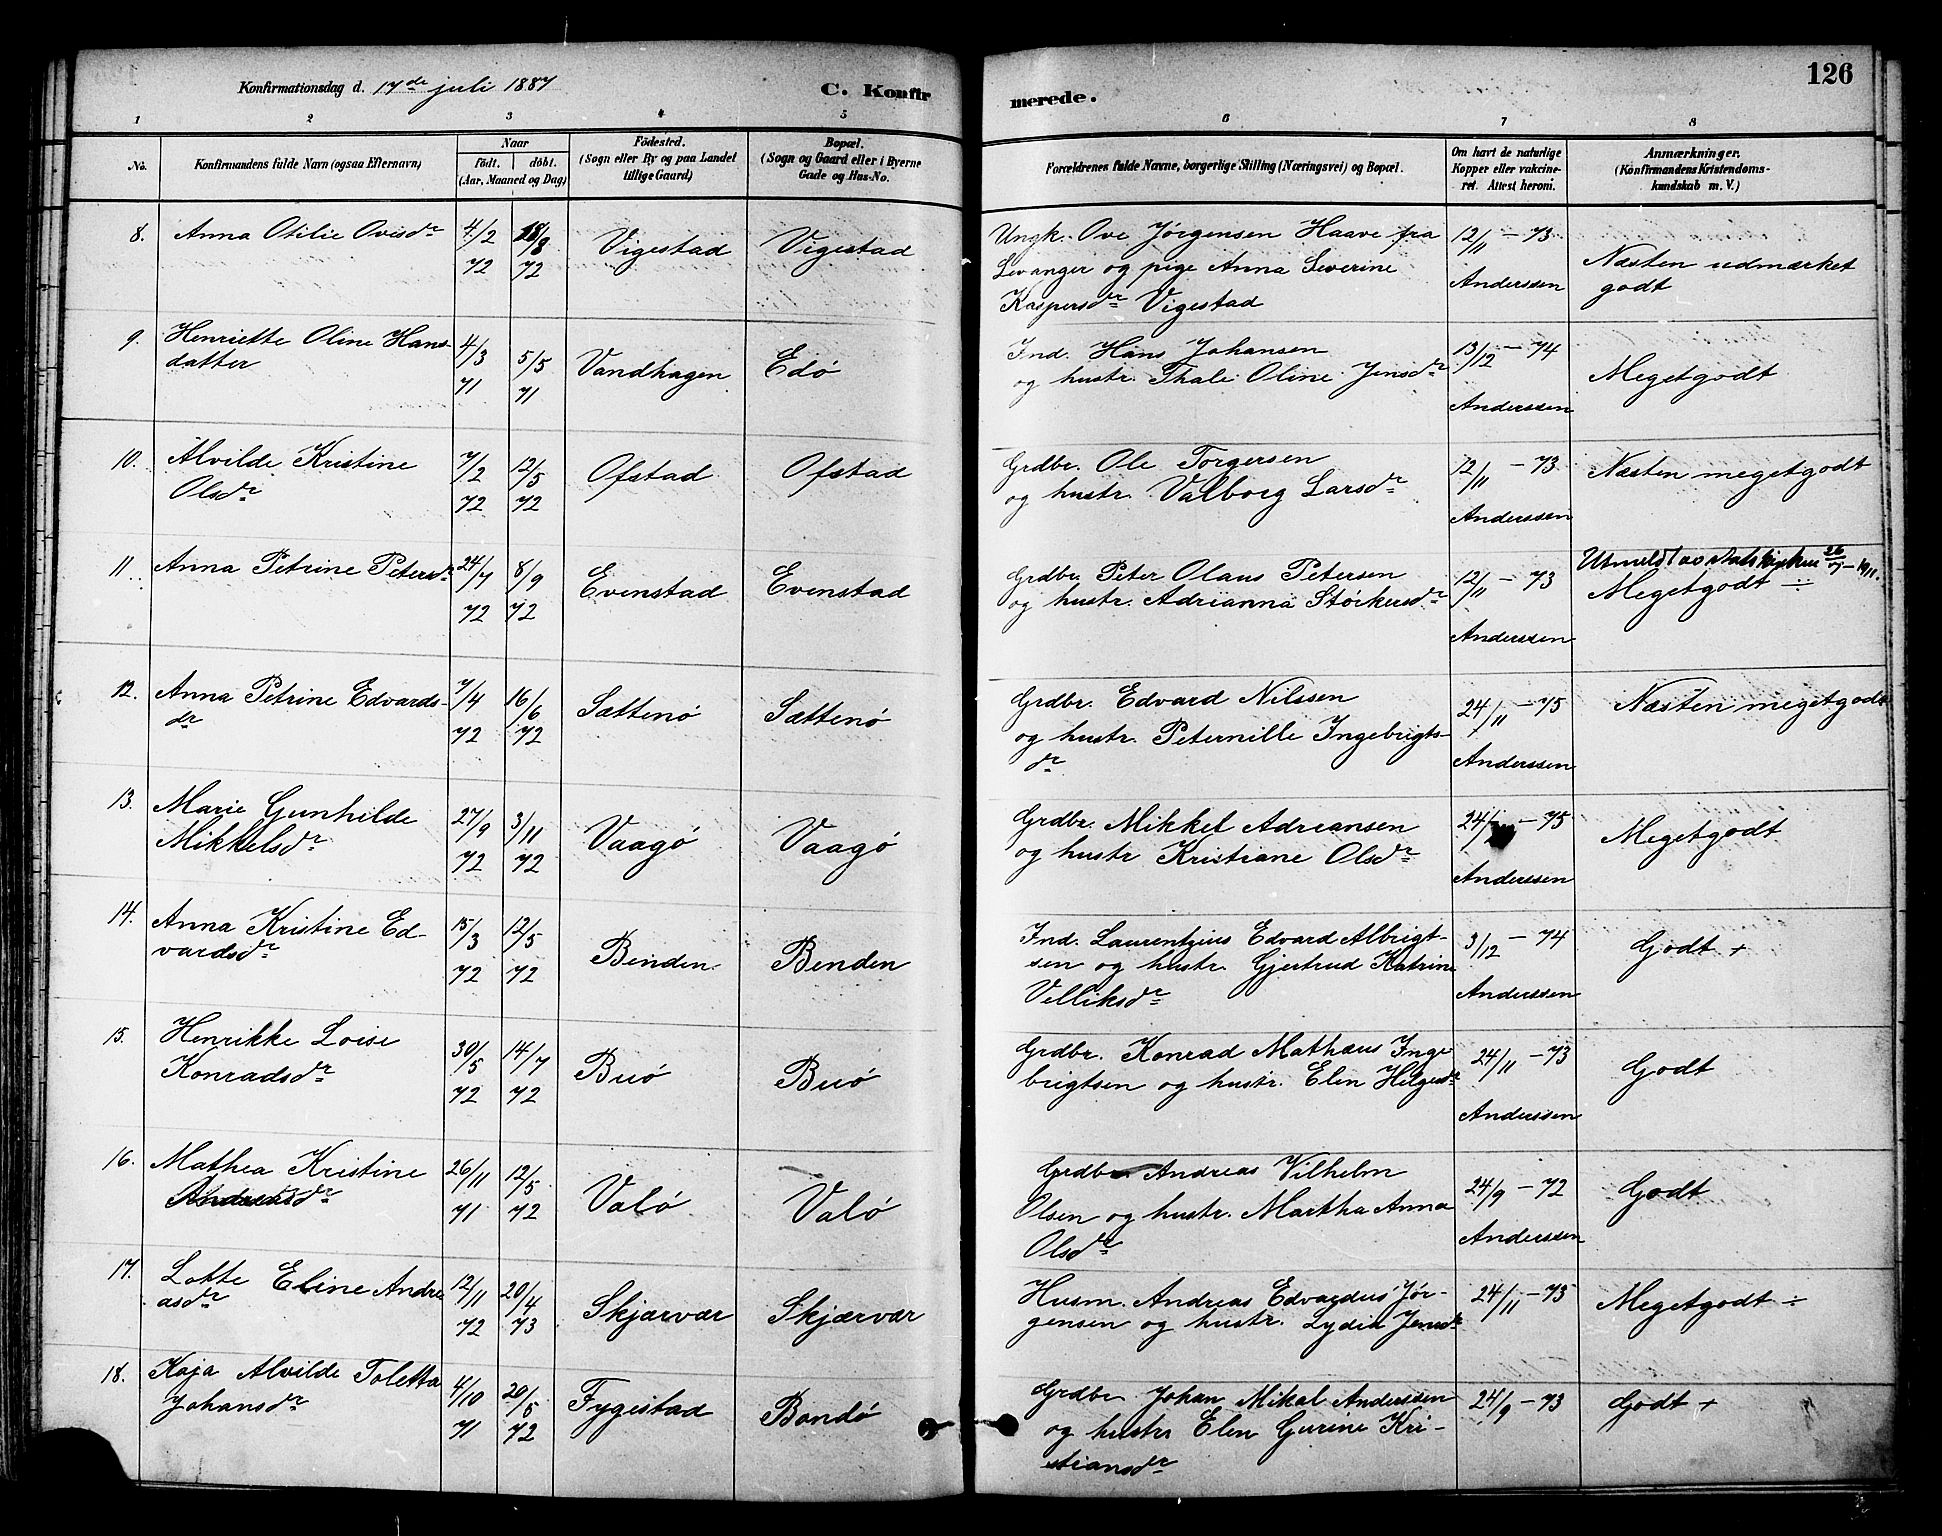 126
Konfirmationsdag d. 17de juli 1887 C. Konfirmerede.
1 2 3 4 5 6 7 8
No. Konfirmandens fulde Navn (ogsaa Efternavn) Naar født. døbt. (Aar, Maaned og Dag) Födested. (Sogn eller By og paa Landet tillige Gaard) Bopæl. (Sogn og Gaard eller i Byerne Gade og Hus-No. Forældrenes fulde Navne, borgerlige Stilling (Næringsvei) og Bopæl. Om havt de naturlige Kopper eller vakcineret. Attest heroni. Anmærkninger. (Konfirmandens Kristendomskundskab m. V.)
8. Anna Otilie Ovisdr 4/2 72 18/3 72 Vigestad Vigestad Ungk. Ove Jørgensen Haave fra 12/11 - 73
Levanger og pige Anna Severine Anderssen Næsten udmærket
Kaspersdr Vigestad godt
9. Henriette Oline Hans- 4/3 71 5/5 71 Vandhagen Edø Ind. Hans Johansen 13/12 - 74
datter og hustr. Thale Oline Jensdr Anderssen Megetgodt
10. Alvilde Kristine 7/2 72 12/5 72 Ofstad Ofstad Grdbr. Ole Torgersen 12/11 - 73 Næsten megetgodt
Olsdr og hustr. Valborg Larsdr Anderssen
11. Anna Petrine Petersdr 24/7 72 8/9 72 Evenstad Evenstad Grdbr. Peter Olaus Petersen 12/11 - 73 Utmeldt av Statskirken 26/7 - 1911.
og hustr. Adrianna Størkersdr Anderssen Megetgodt ÷
12. Anna Petrine Edvards- 7/4 72 16/6 72 Sættenø Sættenø Grdbr. Edvard Nilssen 24/11 - 75 Næsten megetgodt
dr og hustr. Peternille Ingebrigts- Anderssen
dr
13. Marie Gunhilde 27/9 72 3/11 72 Vaagø Vaagø Grdbr. Mikkel Adriansen 24/ - 75 Megetgodt
Mikkelsdr og hustr Kristiane Olsdr Anderssen
14. Anna Kristine Ed- 15/3 72 12/5 72 Benden Benden Ind. Laurentzius Edvard Albrigt- 3/12 - 74 Godt +
vardsdr sen og hustr. Gjertrud Katrine Anderssen
Velliksdr
15. Henrikke Loise 30/5 72 14/7 72 Buø Buø Grdbr. Konrad Mathæus Inge 24/11 - 73 Godt
Konradsdr brigtsen og hustr. Elen Helgesdr Anderssen
16. Mathea Kristine 26/11 71 12/5 72 Valø Valø Grdbr Andreas Vilhelm 24/9 - 72 Godt
Andreasdr Olsen og hustr. Martha Anna Anderssen
Olsdr
17. Lotte Eline Andre 12/11 72 20/4 73 Skjærvær Skjærvær Husm. Andreas Edvardus Jør- 24/11 - 73 Megetgodt ÷
asdr gensen og hustr. Lydia Jensdr
18. Kaja Alvilde Toletta 4/10 71 20/5 72 Fygestad Bondø Grdbr Johan Mikal Anderssen 24/9 - 73 Godt +
Johansdr og hustr Elen Gurine Kri-
stiansdr